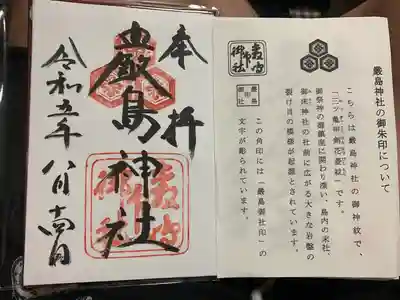 厳島神社の御朱印について
こちらは厳島神社の御神紋で、
「三ツ亀甲剣花菱紋」です。
御祭神の御鎮座に関わり深い、島内の末社、
御床神社の社前に広がる大きな岩盤の
裂け目の模様が起源とされています。
この角印には「厳島御社印」の
文字が彫られています。
奉拝
嚴島神社
令和五年八月十六日